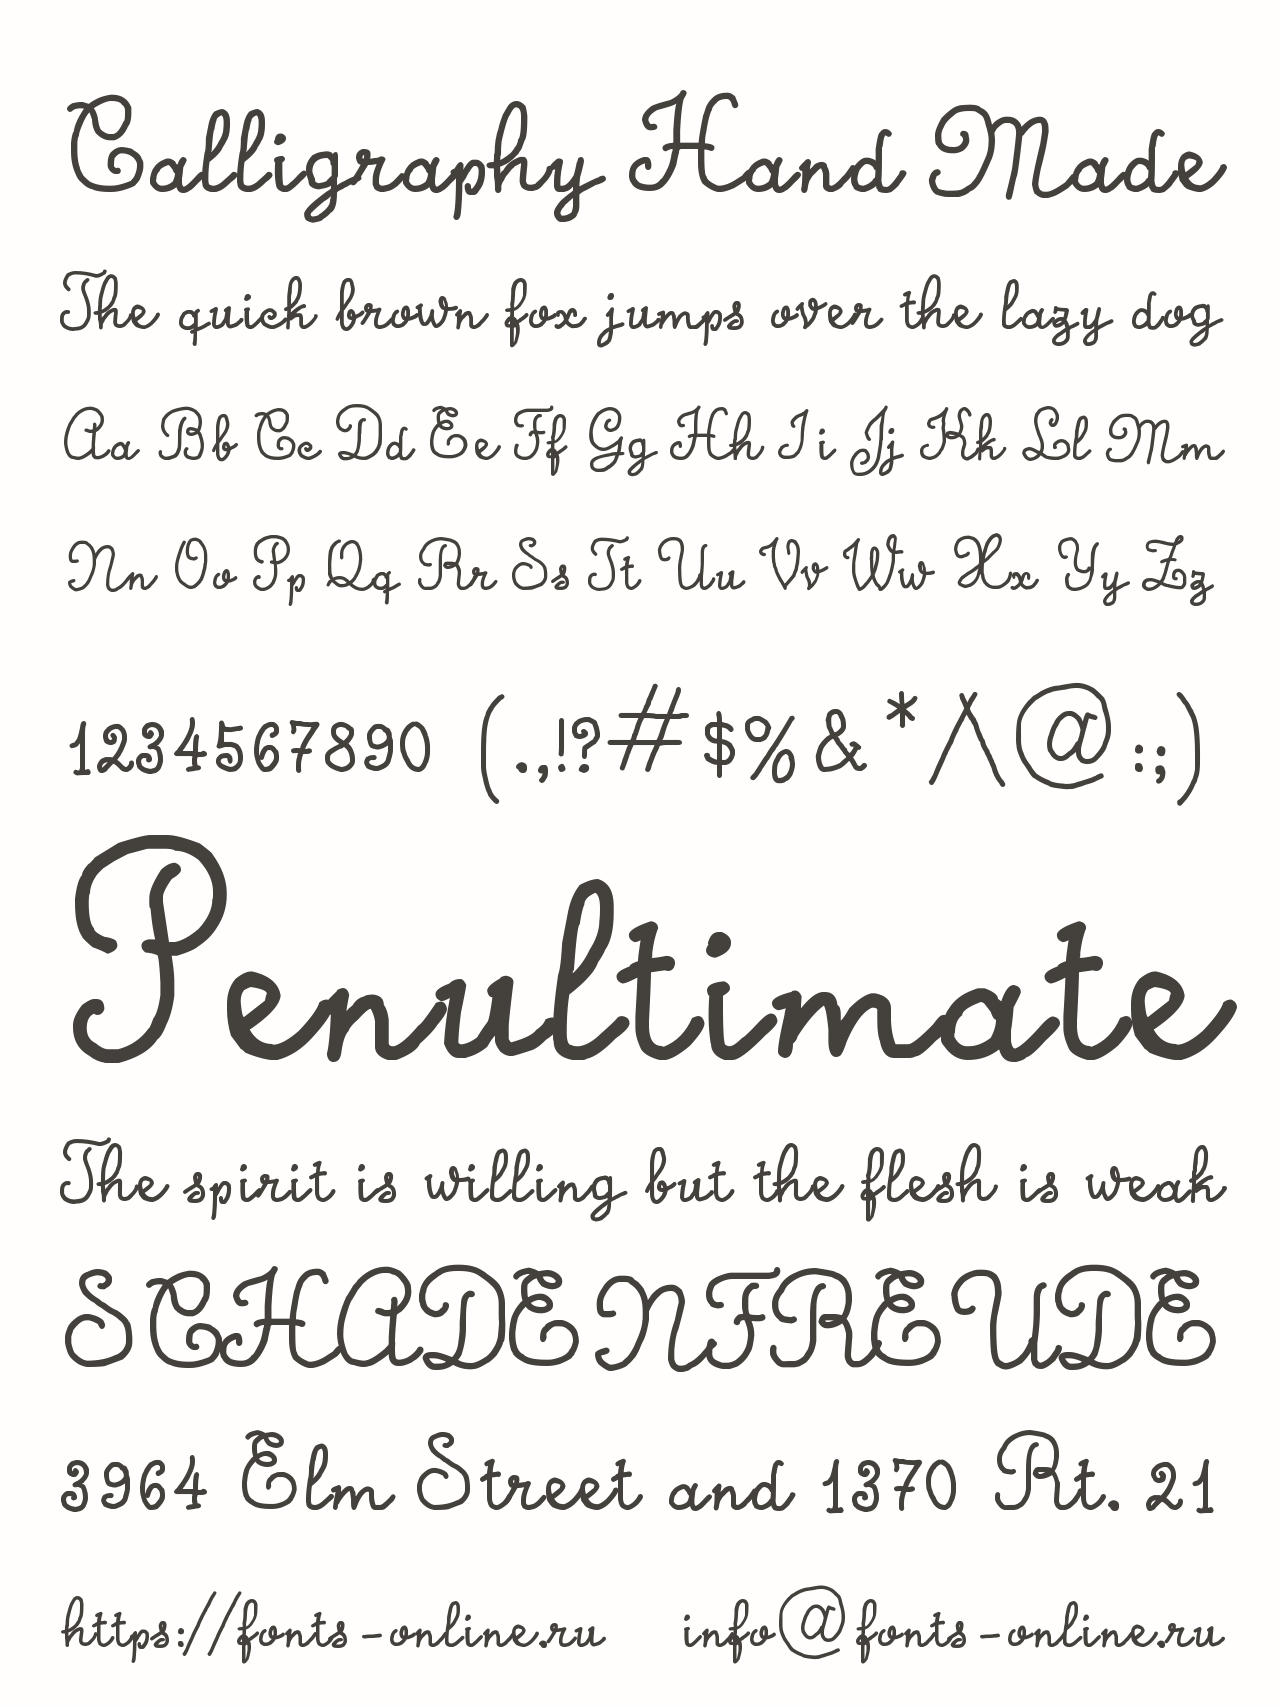 Calligraphy Hand Made
The quick brown fox jumps over the lazy dog
Aa Bb Cc Dd Ee Ff Gg Hh Ii Jj Kk Ll Mm
Nn Oo Pp Qq Rr Ss Tt Uu Vv Ww Xx Yy Zz
1234567890 (.,!?#$%&*/\@:;)
Penultimate
The spirit is willing but the flesh is weak
SCHADENFREUDE
3964 Elm Street and 1370 Rt. 21
https://fonts-online.ru info@fonts-online.ru